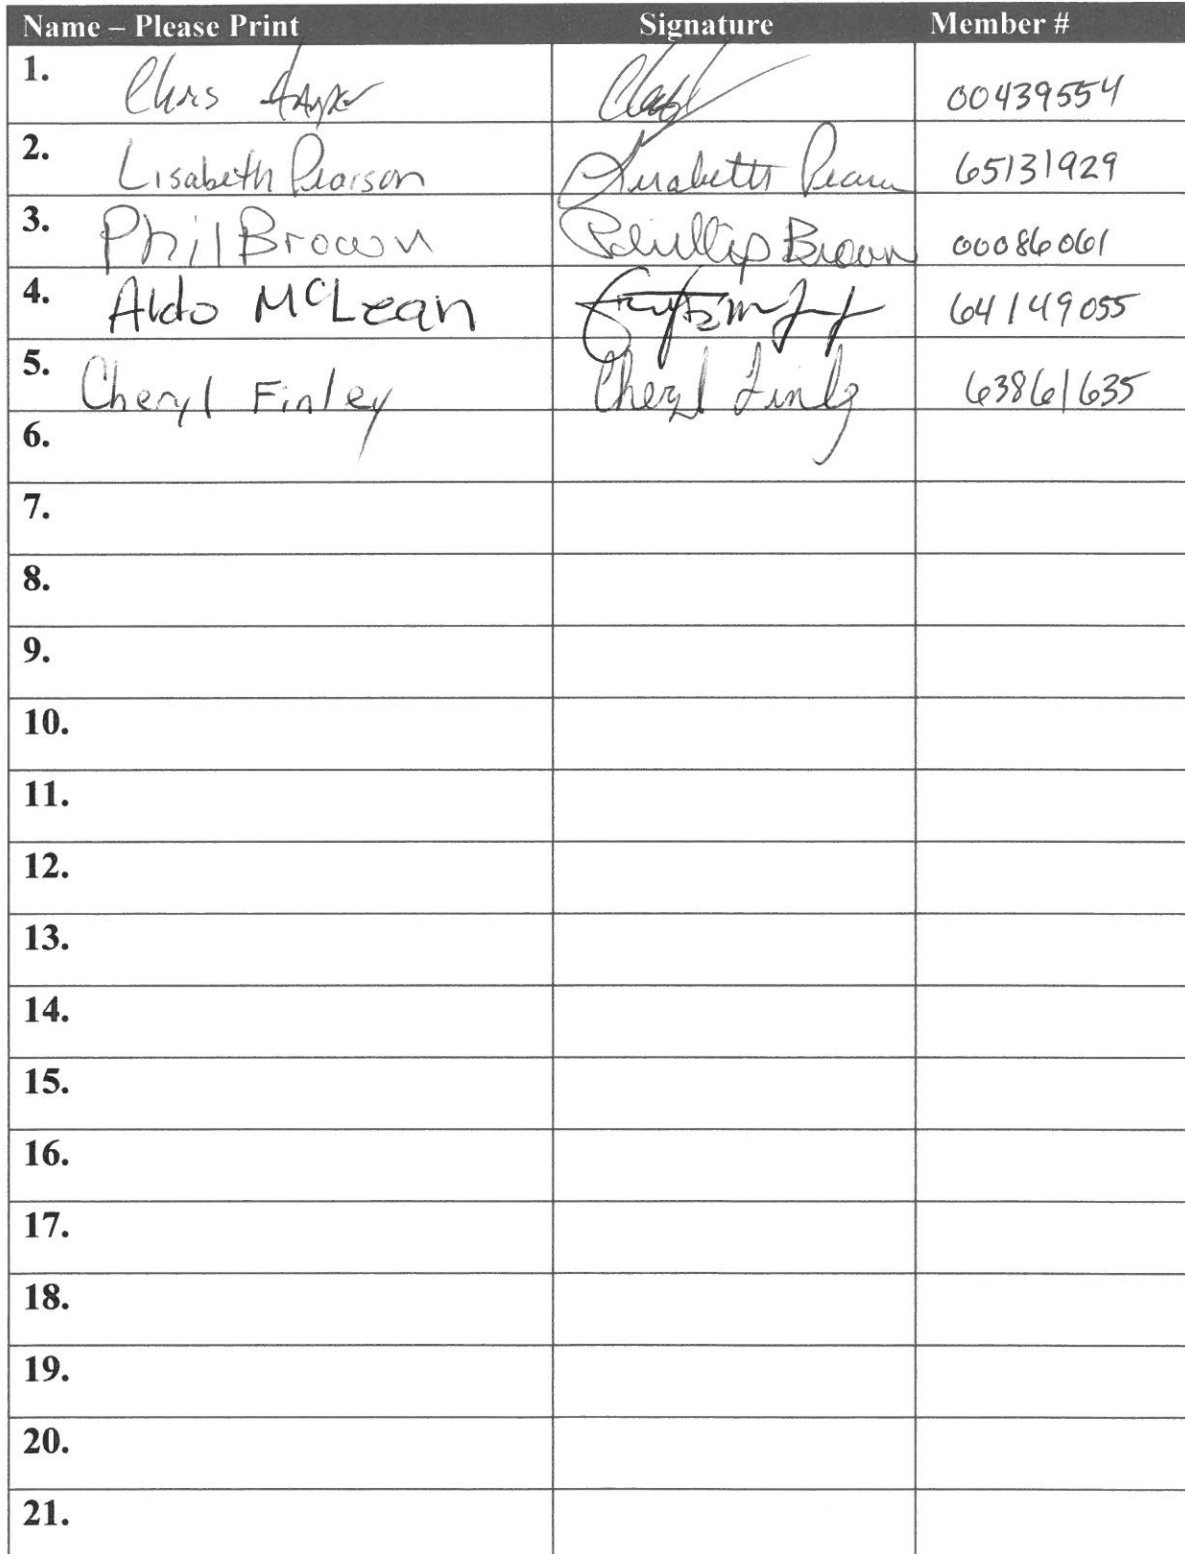 Name – Please Print Signature Member #
1. Chris 00439554
2. Lisabeth Pearson Lisabeth Pearson 65131929
3. Phil Brown Phillip Brown 00086061
4. Aldo McLean 64149055
5. Cheryl Finley Cheryl Finley 63861635
6.
7.
8.
9.
10.
11.
12.
13.
14.
15.
16.
17.
18.
19.
20.
21.